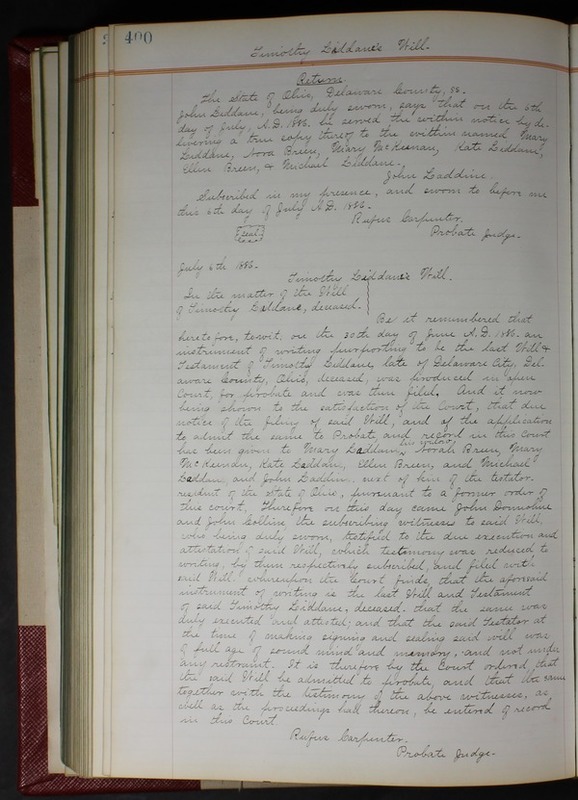 400
Timothy Liddane's Will.
Return.
The State of Ohio, Delaware County, ss.
John Liddane, being duly sworn, says that on the 6th
day of July, A.D. 1886. he served the within notice by de-
livering a true copy thereof to the within named Mary
Liddane, Nora Breen, Mary McKeenan, Kate Liddane,
Ellen Breen, & Michael Liddane.
John Laddine.
Subscribed in my presence, and sworn to before me
this 6th day of July A.D. 1886.
Rufus Carpenter.
Probate Judge.
seal.
July 6th 1886.
Timothy Liddane's Will.
In the matter of the Will
of Timothy Liddane, deceased.
Be it remembered that
heretofore, towit, on the 30th day of June A.D. 1886. an
instrument of writing purporting to be the last Will &
Testament of Timothy Liddane, late of Delaware City, Del-
aware County, Ohio, deceased, was produced in open
Court, for probate and was then filed. And it now
being shown to the satisfaction of the Court, that due
notice of the filing of said Will, and of the application
to admit the same to Probate, and record in this Court
has been given to Mary Laddane, his widow, Norah Breen, Mary
McKeenan, Kate Laddane, Ellen Breen, and Michael
Laddane and John Laddane. next of kin of the testator.
resident of the State of Ohio, pursuant to a former order of
this court, Therefore on this day came John Donohue
and John Collins the subscribing witnesses to said Will,
who being duly sworn, testified to the due execution and
attestation of said Will, which testimony was reduced to
writing, by them respectively subscribed, and filed with
said Will. whereupon the Court finds, that the aforesaid
instrument of writing is the last Will and Testament
of said Timothy Liddane, deceased. that the same was
duly executed and attested; and that the said Testator at
the time of making signing and sealing said will was
of full age of sound mind and memory, and not under
any restraint. It is therefore by the Court ordered, that
the said Will be admitted to probate, and that the same
together with the testimony of the above witnesses, as
well as the proceedings had thereon, be entered of record
in this Court
Rufus Carpenter.
Probate Judge.